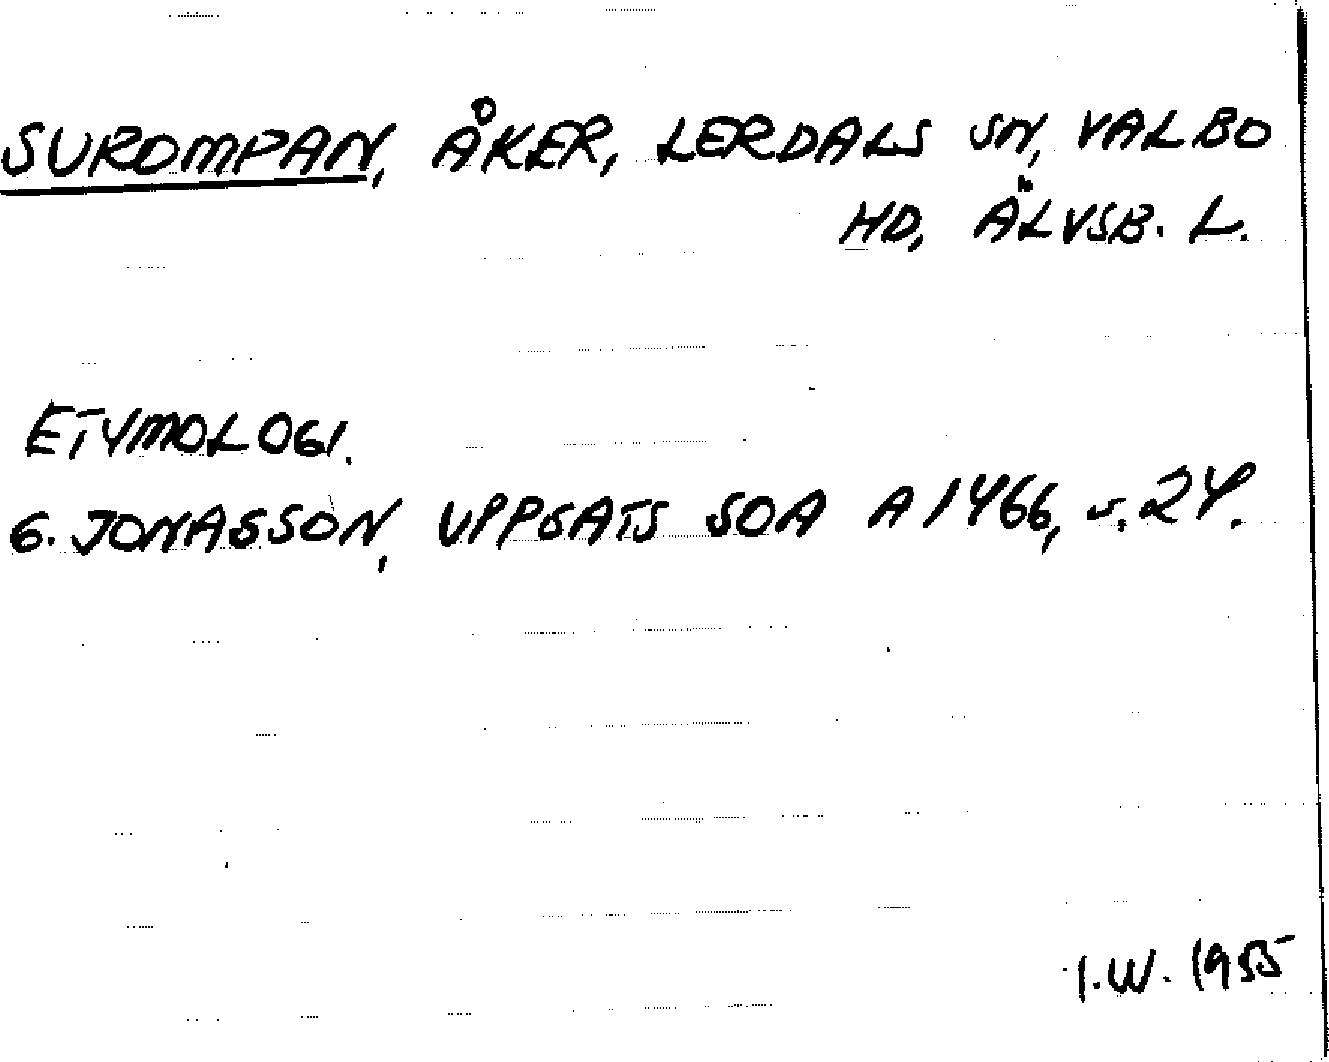 SUROMPAN, ÅKER, LERDALS SN, VALBO
HD, ÄLVSB. L.
ETYMOLOGI.
G. JONASSON, UPPSATS SOA A 1466, s. 24.
I.W. 1955